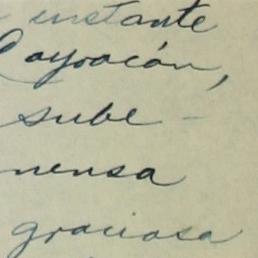 instante
Coyoacán,
sube-
nensa
graciosa